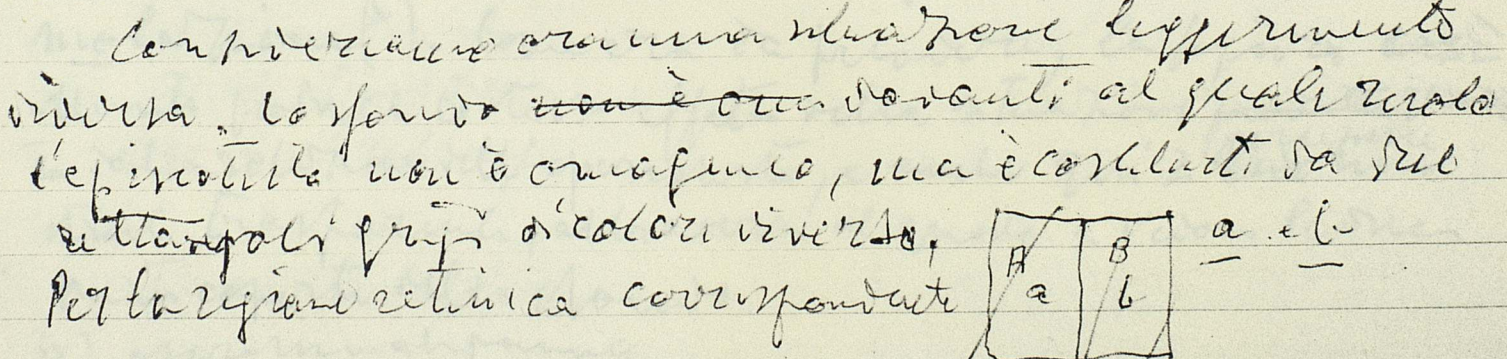 Consideriamo ora una situazione leggermente
diversa. Lo sfondo non è ora davanti al quale ruota
l'episcotista non è omogeneo, ma è costituito da due
rettangoli grigi di colore diverso, A B a e b
Per la regione retinica corrispondente a b